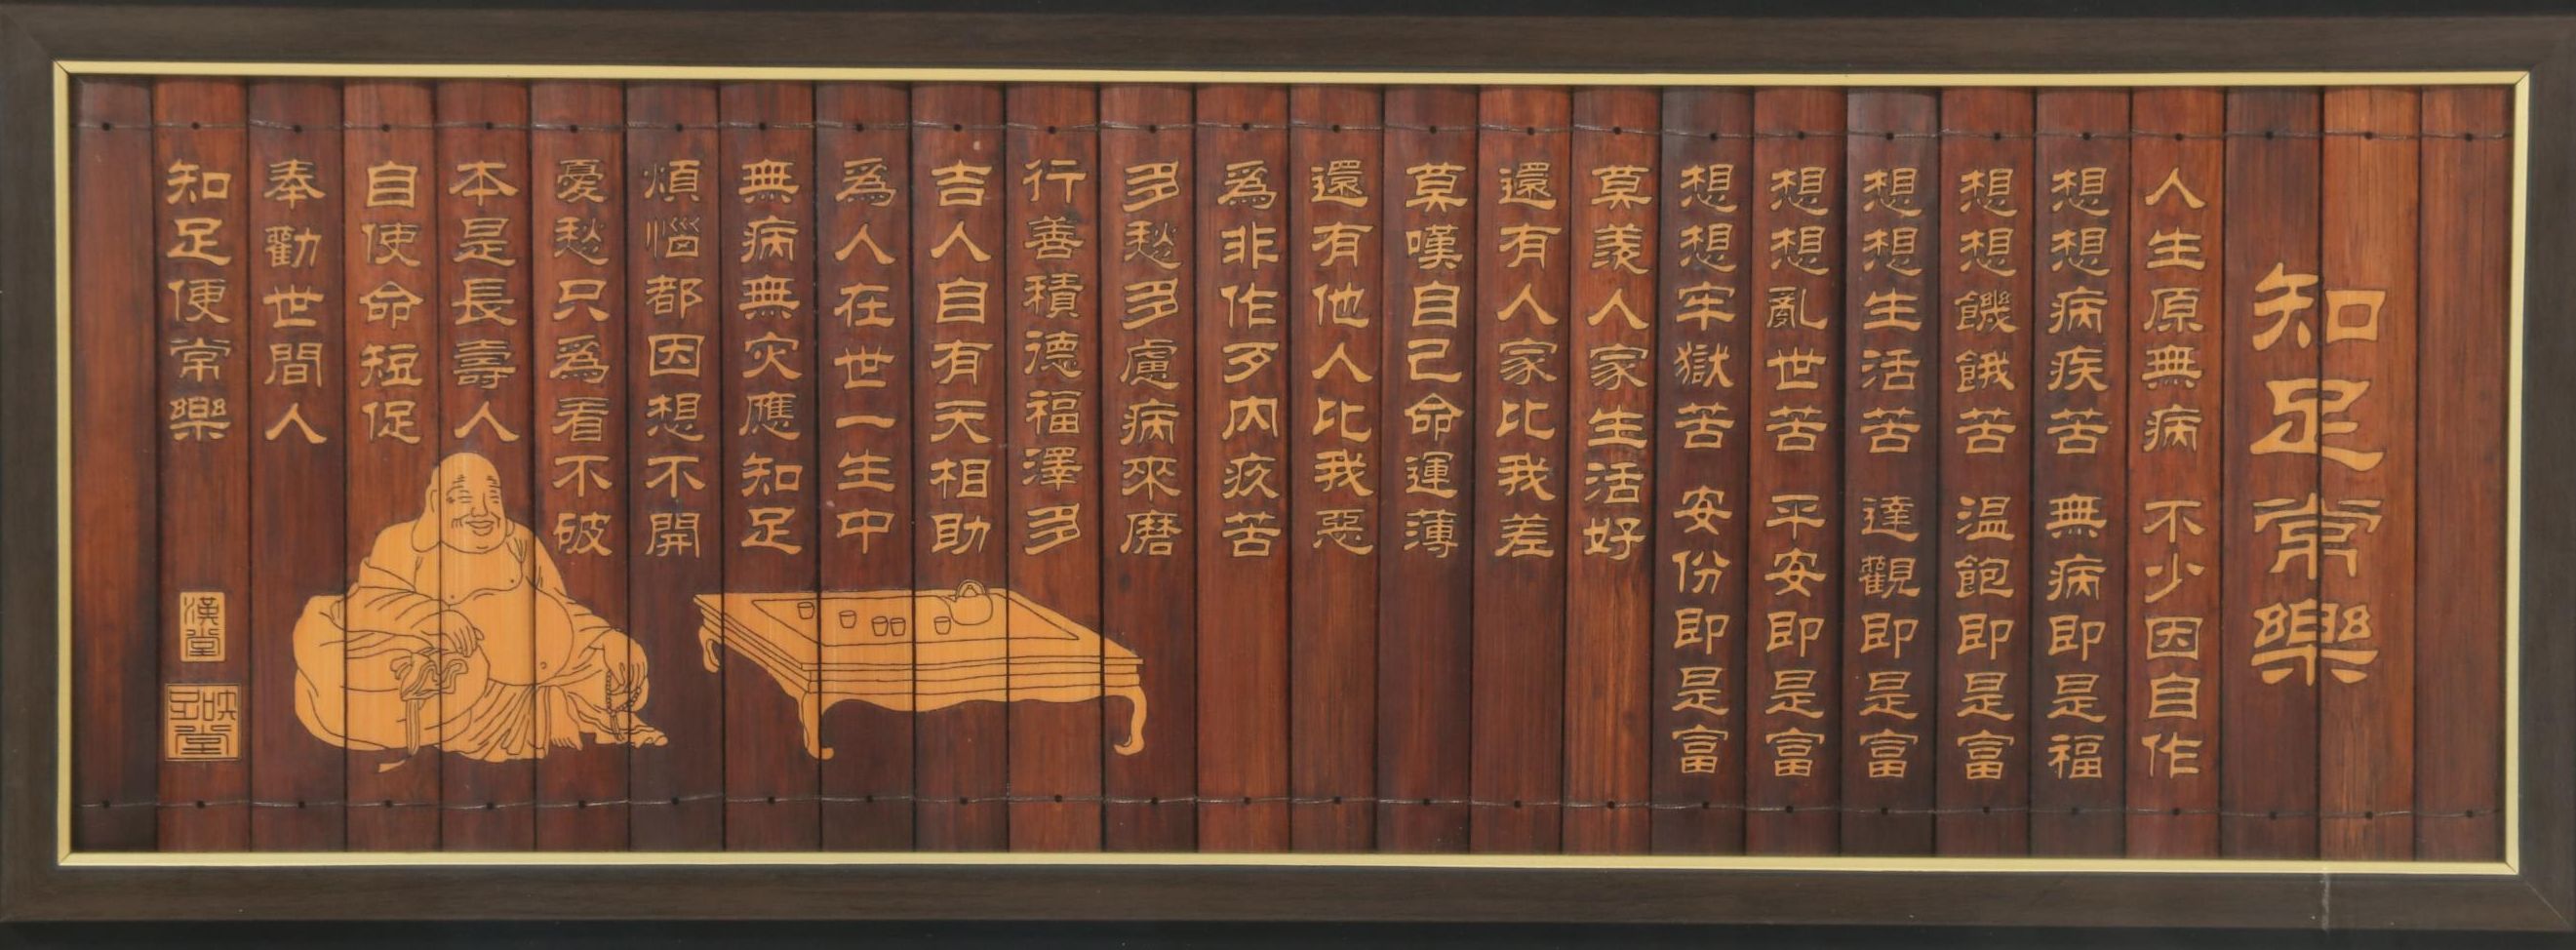 知足常樂
人生原無病 不少因自作
想想病疾苦 無病即是福
想想饑餓苦 温飽即是富
想想生活苦 達觀即是富
想想亂世苦 平安即是富
想想牢獄苦 安份即是富
莫羨人家生活好
還有人家比我差
莫嘆自己命運薄
還有他人比我惡
為非作歹内疚苦
多愁多慮病來磨
行善積德福澤多
吉人自有天相助
為人在世一生中
無病無灾應知足
煩惱都因想不開
憂愁只為看不破
本是長壽人
自使命短促
奉勸世間人
知足便常樂
漢堂